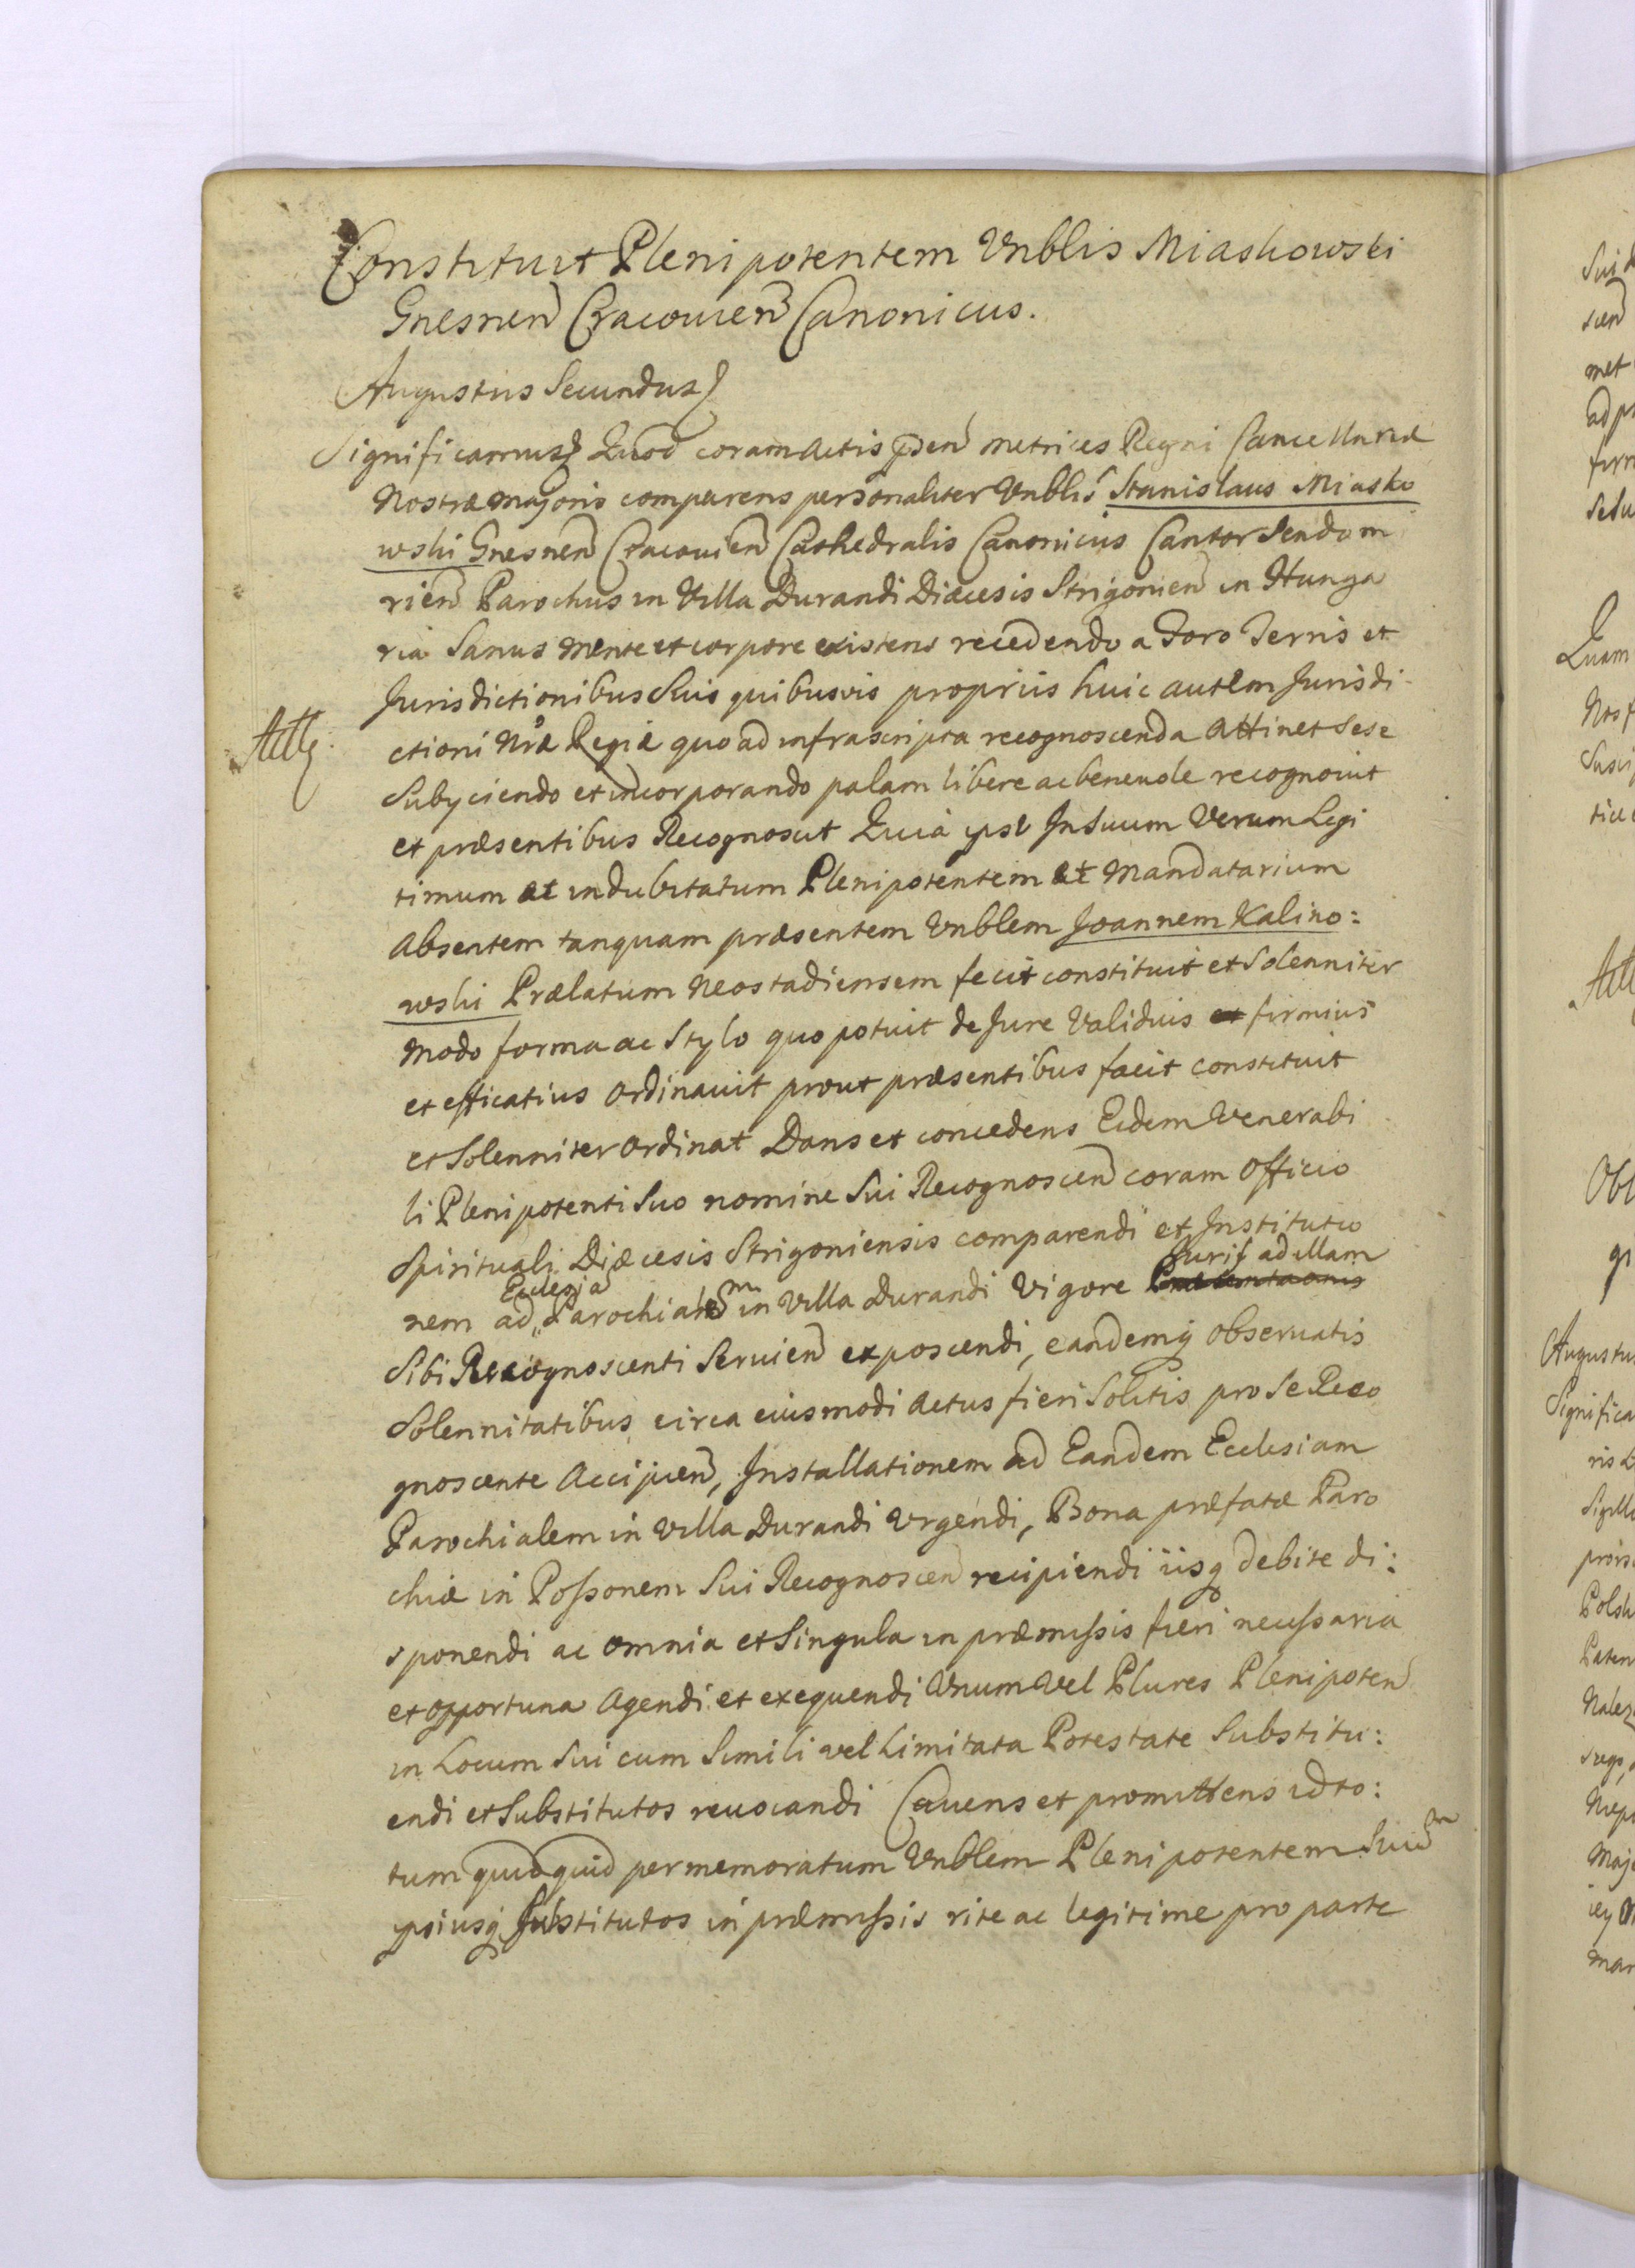 Constituit Plenipotentem Vnblis Miaskowski
Gnesnen Cracouien Canonicus.
Augustus Secundus
Significamus Quod coram actis pden metrices Regni Cancellariæ
Nostræ Majoris comparens personaliter Vnblis Stanislaus Miasko
wski Gnesnen Cracouien Cathedralis Canonicus Cantor Sendom
rien Parochus in Villa Durandi Diæcesis Strigonien in Hunga
ria Sanus mente et corpore existens recedendo a Foro Terris et
Jurisdictionibus Suis quibusvis propriis huic autem Jurisdi-
ctioni Nræ Regiæ quo ad infrascripta recognoscenda attinet sese
Subyciendo et incorporando palam libere ac beneuole recognouit
et præsentibus Recognoscit Quia ipse In Suum Verum Legi
timum et indubitatum Plenipotentem et Mandatarium
Absentem tanquam præsentem Vnblem Joannem Kalino:
wski Prælatum Neostadiensem fecit constituit et Solenniter
Modo forma ac Stylo quo potuit de Jure Validius et firmius
et efficatius Ordinauit prout præsentibus facit constituit
et Solenniter Ordinat Dans et concedens Eidem Venerabi
li Plenipotenti Suo nomine Sui Recognoscen coram Officio
Spirituali Diæcesis Strigoniensis comparendi et Institutio
Ecclesia Juris ad illam
nem ad Parochialem in Villa Durandi Vigore
Sibi Recognoscenti Seruien exposcendi, eandemq obseruatis
Solennitatibus circa eiusmodi Actus fieri Solitis pro Se Reco
gnoscente Accipien, Installationem ad Eandem Ecclesiam
Parochialem in Villa Durandi Vrgendi, Bona præfatæ Paro
chiæ in Poßonem Sui Recognoscen recipiendi iisq debite di:
sponendi ac omnia et Singula in præmißis fieri neceßaria
et opportuna Agendi et exequendi Vnum Vel Plures Plenipoten
in Locum Sui cum Simili vel Limitata Potestate Substitu:
endi et Substitutos reuocandi Cauens et promittens id to:
tum quidquid per memoratum Vnblem Plenipotentem Suum
ipsiusq Substitutos in præmißis rite ac legitime pro parte